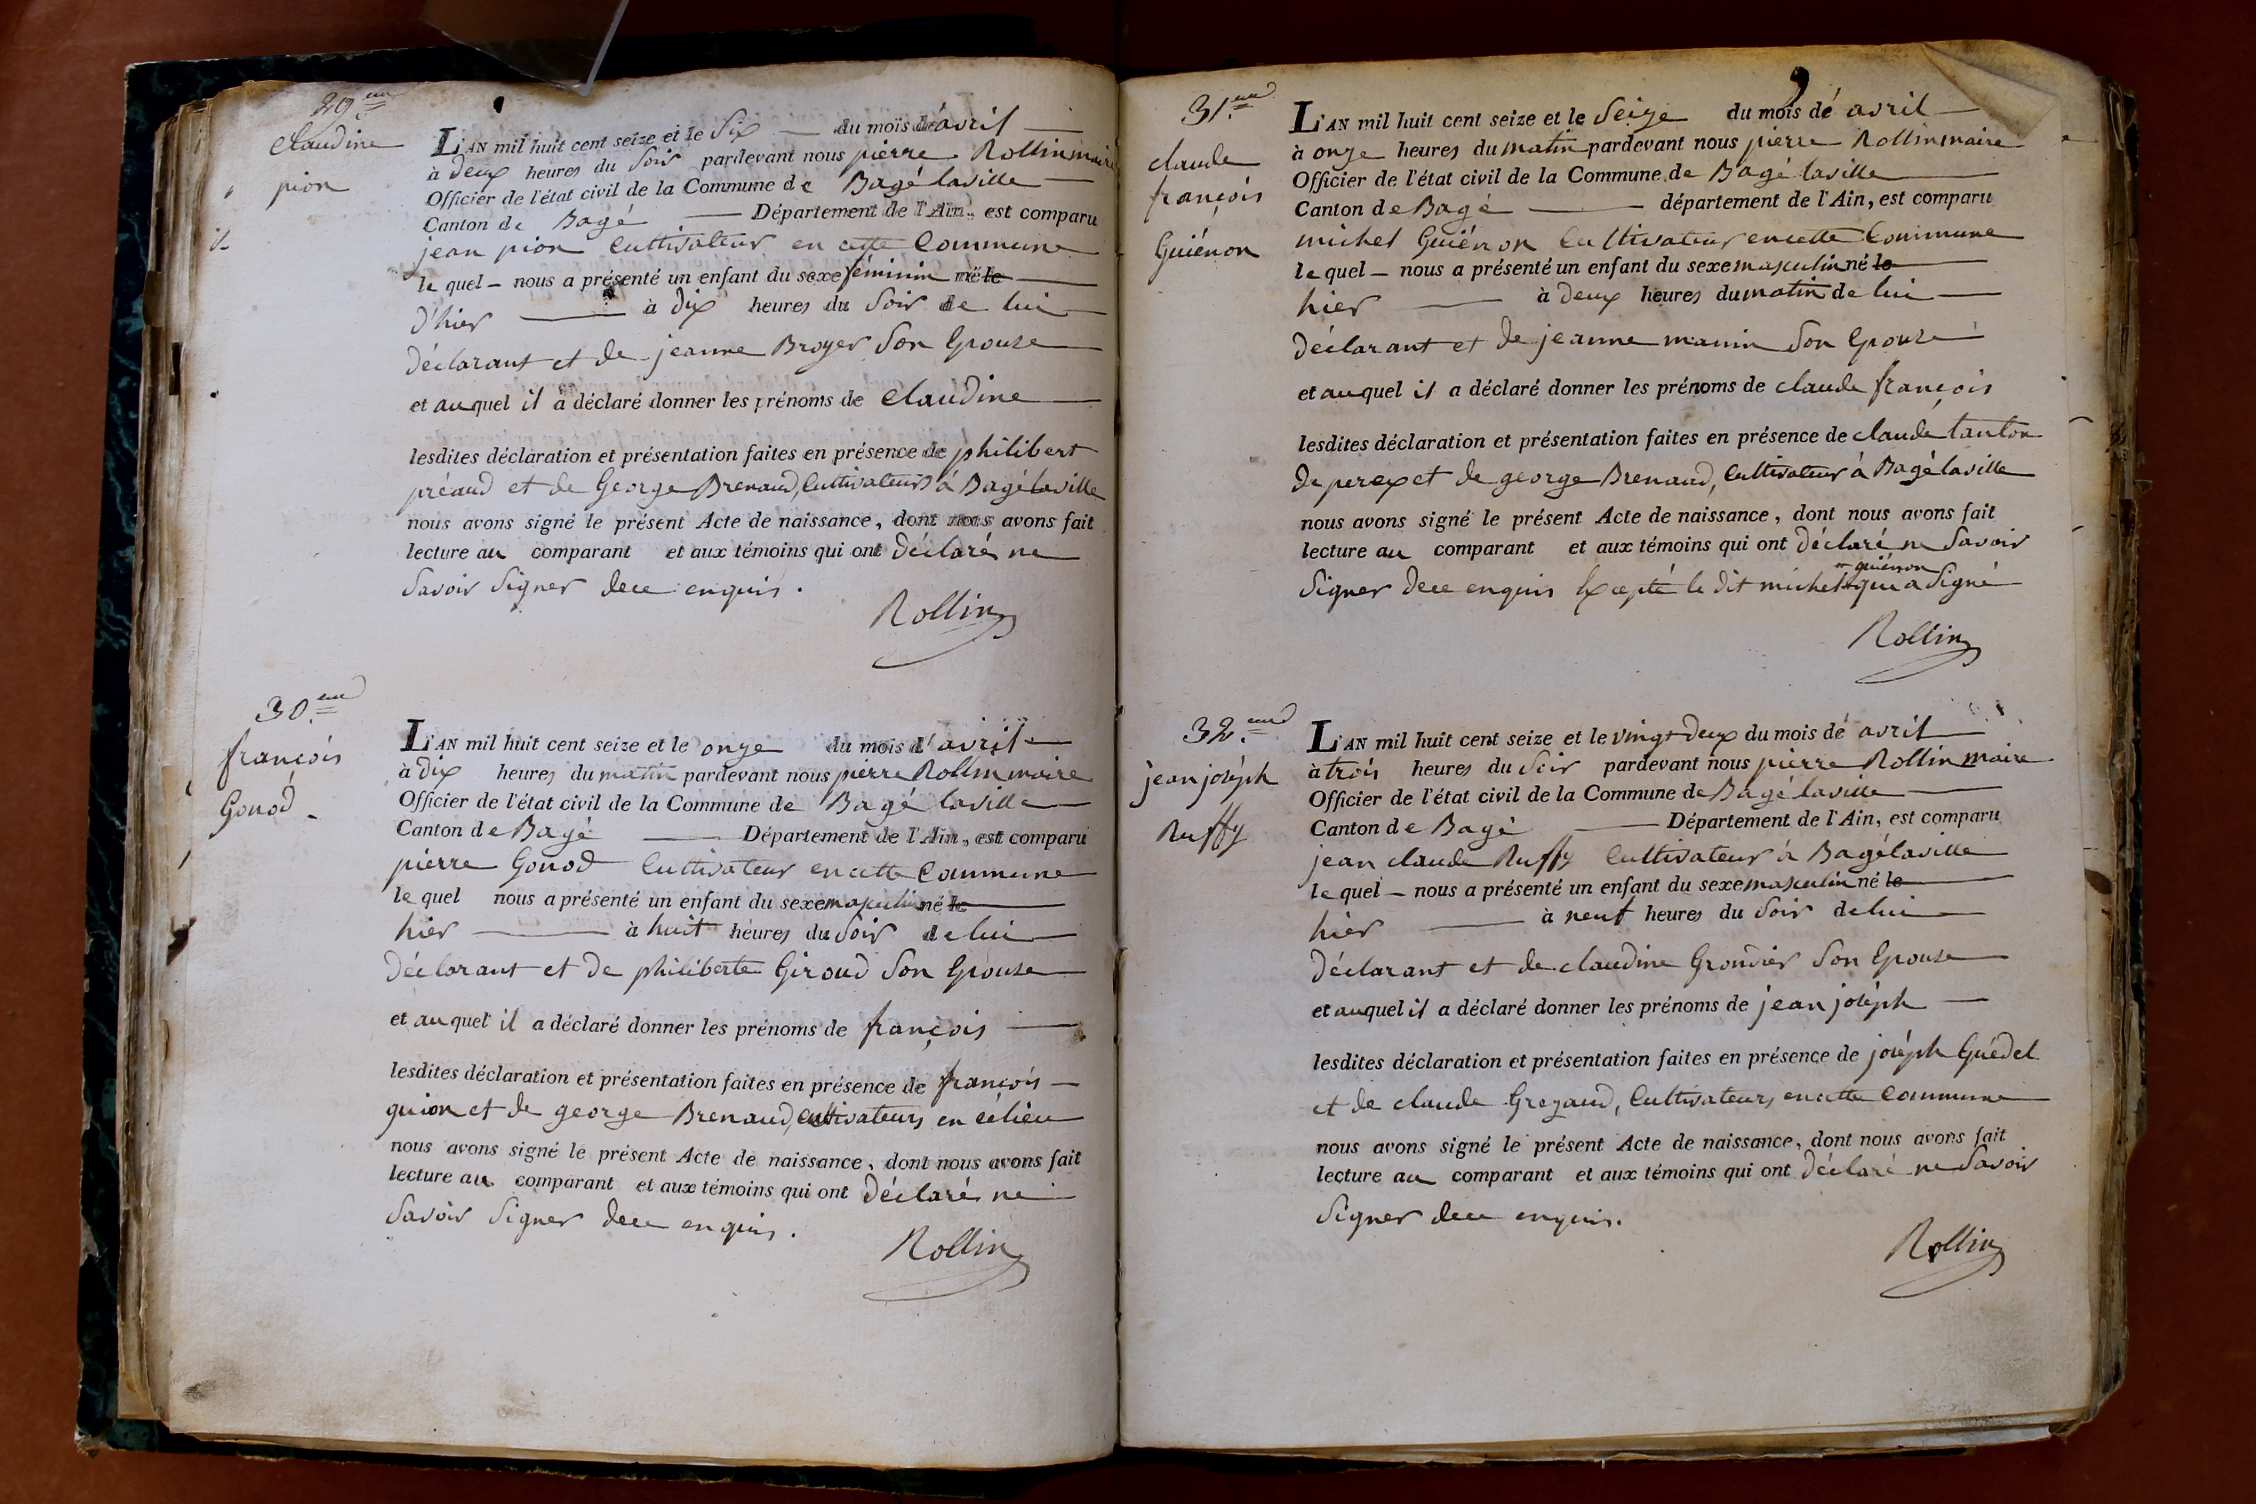 29.eme
claudine
pion
L'AN mil huit cent seize et le Six du mois d'avril
à deux heures du Soir pardevant nous pierre Rollin maire
Officier de l'état civil de la Commune de Bagé laville
Canton de Bagé Département de l'Ain, est comparu
jean pion Cultivateur en cette Commune
le quel nous a présenté un enfant du sexe féminin né le
d'hier à dix heures du Soir de lui
déclarant et de jeanne Broyer Son Epouse
et auquel il a déclaré donner les prénoms de claudine
lesdites déclaration et présentation faites en présence de philibert
préaud et de George Brenaud, Cultivateurs à Bagé laville
nous avons signé le présent Acte de naissance, dont nous avons fait
lecture au comparant et aux témoins qui ont déclaré ne
Savoir Signer dece enquis.
Rollin
30.eme
françois
Gonod
L'AN mil huit cent seize et le onze du mois d'avril
à dix heures du matin pardevant nous pierre Rollin maire
Officier de l'état civil de la Commune de Bagé laville
Canton de Bagé Département de l'Ain, est comparu
pierre Gonod Cultivateur en cette Commune
le quel nous a présenté un enfant du sexe masculin né le
hier à huit heures du Soir de lui
déclarant et de philiberte Giroud Son Epouse
et auquel il a déclaré donner les prénoms de françois
lesdites déclaration et présentation faites en présence de françois
guion et de george Brenaud, Cultivateurs en cé lieu
nous avons signé le présent Acte de naissance, dont nous avons fait
lecture au comparant et aux témoins qui ont déclaré ne
Savoir Signer dece enquis.
Rollin
31.eme
claude
françois
Guiénon
L'AN mil huit cent seize et le Seize du mois dé avril
à onze heures du matin pardevant nous pierre Rollin maire
Officier de l'état civil de la Commune de Bagé laville
Canton de Bagé département de l'Ain, est comparu
michel Guiénon Cultivateur en cette Commune
le quel nous a présenté un enfant du sexe masculin né le
hier à deux heures du matin de lui
déclarant et de jeanne manin Son Epouse
et auquel il a déclaré donner les prénoms de claude françois
lesdites déclaration et présentation faites en présence de claude tanton
de perex et de george Brenaud, Cultivateur à Bagé laville
nous avons signé le présent Acte de naissance, dont nous avons fait
lecture au comparant et aux témoins qui ont déclaré ne Savoir
guiénon
Signer dece enquis Excepté le dit michel qui a Signé
Rollin
32.eme
jean joséph
Ruffy
L'AN mil huit cent seize et le vingt deux du mois dé avril
à trois heures du Soir pardevant nous pierre Rollin maire
Officier de l'état civil de la Commune de Bagé laville
Canton de Bagé Département de l'Ain, est comparu
jean claude Ruffy Cultivateur à Bagé laville
le quel nous a présenté un enfant du sexe masculin né le
hier à neuf heures du Soir de lui
déclarant et de claudine Grondier Son Epouse
et auquel il a déclaré donner les prénoms de jean joséph
lesdites déclaration et présentation faites en présence de joséph Guédel
et de claude Grezaud, Cultivateurs en cette Commune
nous avons signé le présent Acte de naissance, dont nous avons fait
lecture au comparant et aux témoins qui ont déclaré ne Savoir
Signer dece enquis.
Rollin